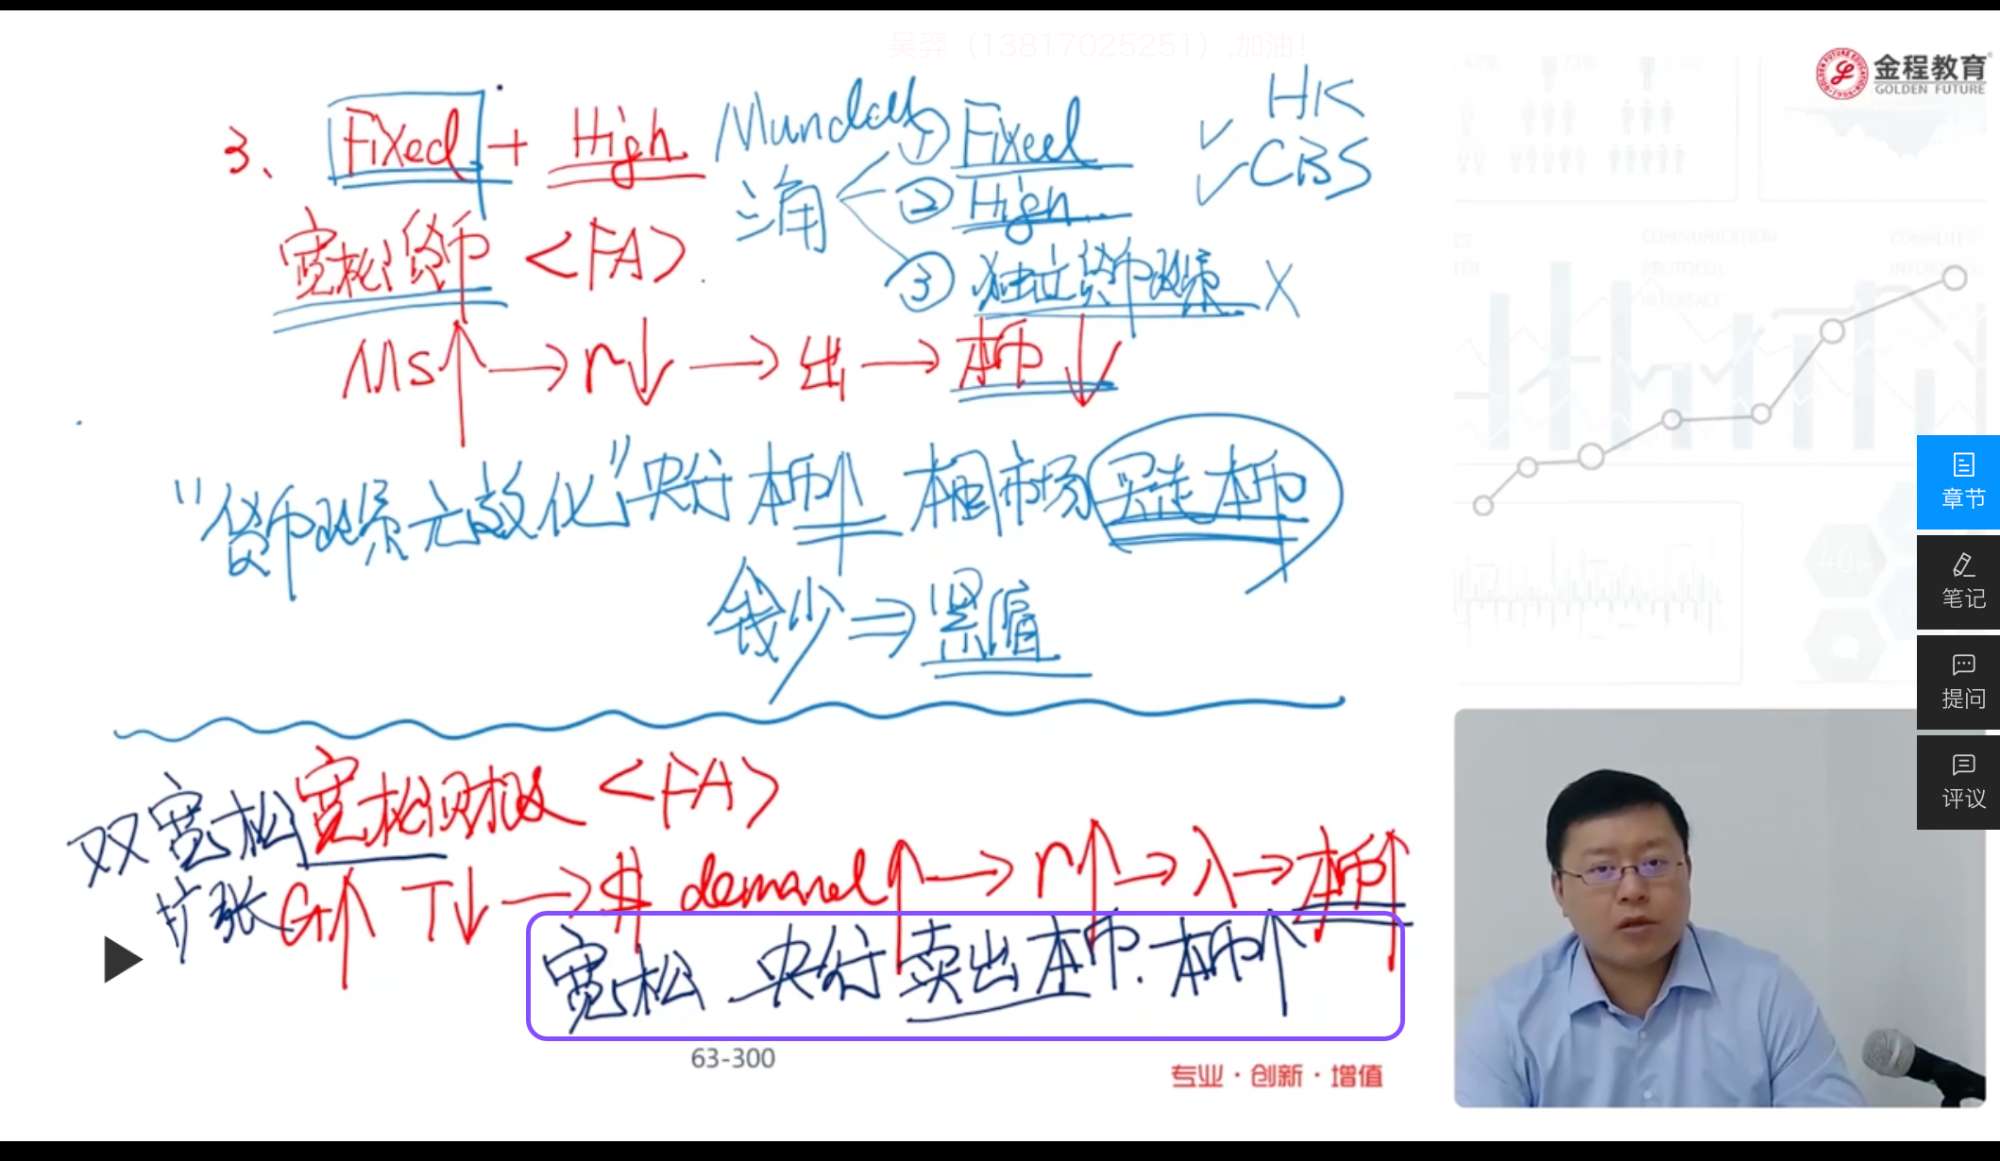 吴弈（13817025251）,加油!
金程教育
GOLDEN FUTURE
3、 Fixed + High
宽松货币 <FA>
Ms↑ → r↓ → 出 → 本币↓
Mundell
三角
① Fixed
② High
③ 独立货币政策 X
HK
✓ CBS
✓
"货币政策无效化" 央行 本币↑ 本国市场 买走本币
钱少 ⇒ 紧缩
双宽松 宽松财政 <FA>
扩张 G↑ T↓ → $ demand↑ → r↑ → 入 → 本币↑
宽松 央行 卖出本币. 本币↑
63-300
专业·创新·增值
章节
笔记
提问
评议